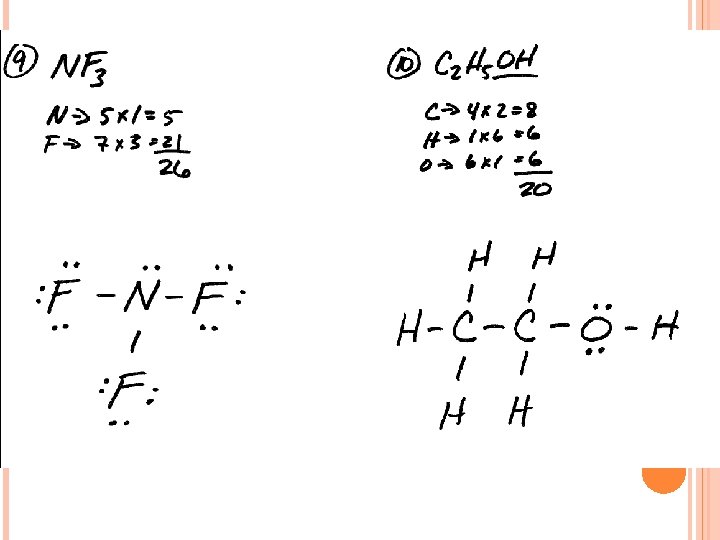 ⑨ NF₃
N → 5 x 1 = 5
F → 7 x 3 = 21
26
:F - N - F:
F:
⑩ C₂H₅OH
C → 4 x 2 = 8
H → 1 x 6 = 6
O → 6 x 1 = 6
20
H H
H - C - C - O - H
H H